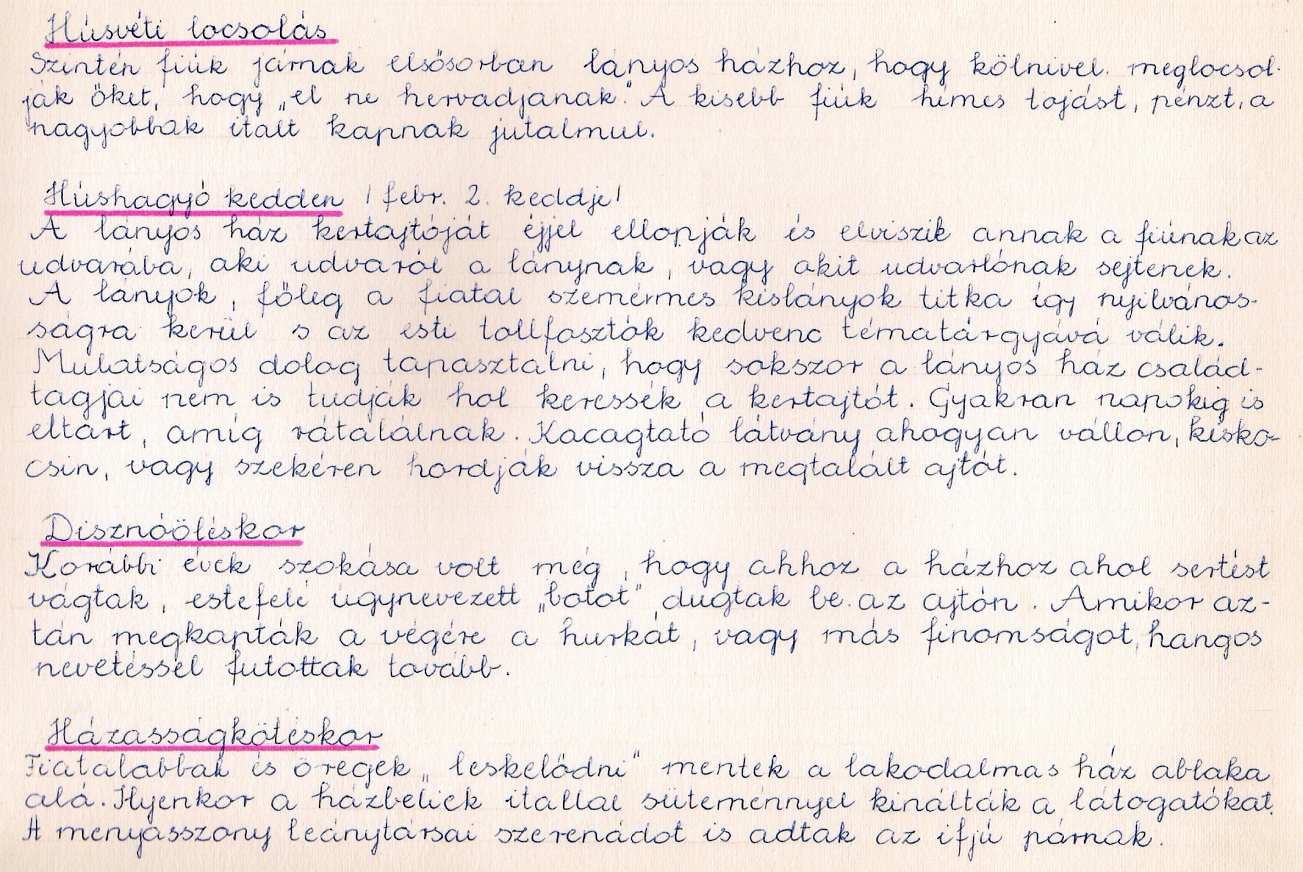 Húsvéti locsolás
Szintén fiúk járnak elsősorban lányos házhoz, hogy kölnivel. meglocsol-
ják őket, hogy „el ne hervadjanak." A kisebb fiúk hímes tojást, pénzt, a
nagyobbak italt kapnak jutalmul.
Húshagyó kedden / febr. 2. keddje/
A lányos ház kertajtóját éjjel ellopják és elviszik annak a fiúnak az
udvarába, aki udvarol a lánynak, vagy akit udvarlónak sejtenek.
A lányok, főleg a fiatal szemérmes kislányok titka így nyilvános-
ságra kerül s az esti tollfosztók kedvenc tématárgyává válik.
Mulatságos dolog tapasztalni, hogy sokszor a lányos ház család-
tagjai nem is tudják hol keressék a kertajtót. Gyakran napokig is
eltart, amíg rátalálnak. Kacagtató látvány ahogyan vállon, kisko-
csin, vagy szekéren hordják vissza a megtalált ajtót.
Disznóöléskor
Korábbi évek szokása volt még, hogy ahhoz a házhoz ahol sertést
vágtak, estefelé úgynevezett „botot" dugtak be az ajtón. Amikor az-
tán megkapták a végére a hurkát, vagy más finomságot, hangos
nevetéssel futottak tovább.
Házasságkötéskor
Fiatalabbak és öregek „leskelődni" mentek a lakodalmas ház ablaka
alá. Ilyenkor a házbeliek itallal süteménnyel kínálták a látogatókat.
A menyasszony leánytársai szerenádot is adtak az ifjú párnak.